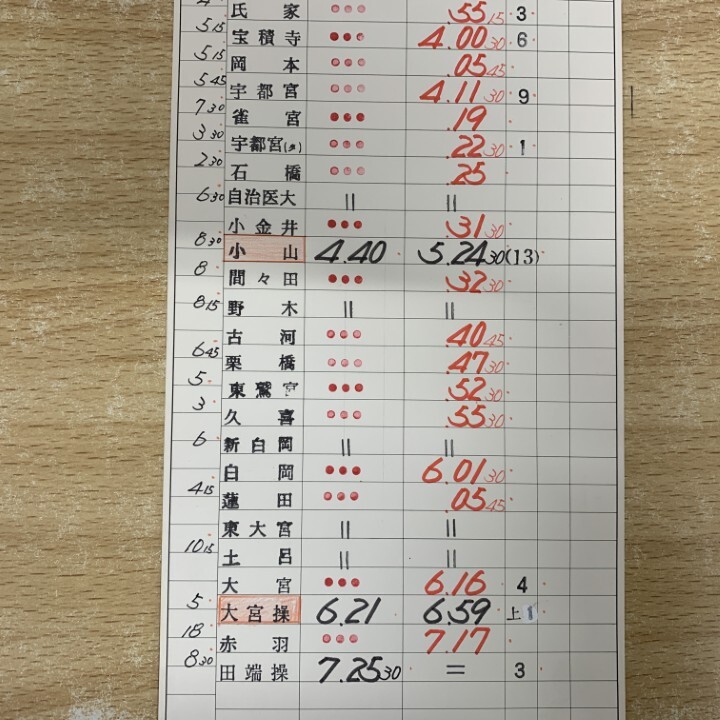 氏家 ••• .55 15 3
5 15 宝積寺 ••• 4.00 30 6
5 15 岡本 ••• .05 45
5 45 宇都宮 ••• 4.11 30 9
7 30 雀宮 ••• .19
3 30 宇都宮(タ) ••• .22 30 1
2 30 石橋 ••• .25
自治医大 || ||
6 30 小金井 ••• .31 30
8 30 小山 4.40 5.24 30 (13)
8 間々田 ••• .32 30
野木 || ||
8 15 古河 ••• .40 45
6 45 栗橋 ••• .47 30
5 東鷲宮 ••• .52 30
3 久喜 ••• .55 30
新白岡 || ||
6 白岡 ••• 6.01 30
4 15 蓮田 ••• .05 45
東大宮 || ||
土呂 || ||
10 15 大宮 ••• 6.16 4
5 大宮操 6.21 6.59 上1
18 赤羽 ••• 7.17
8 30 田端操 7.25 30 = 3